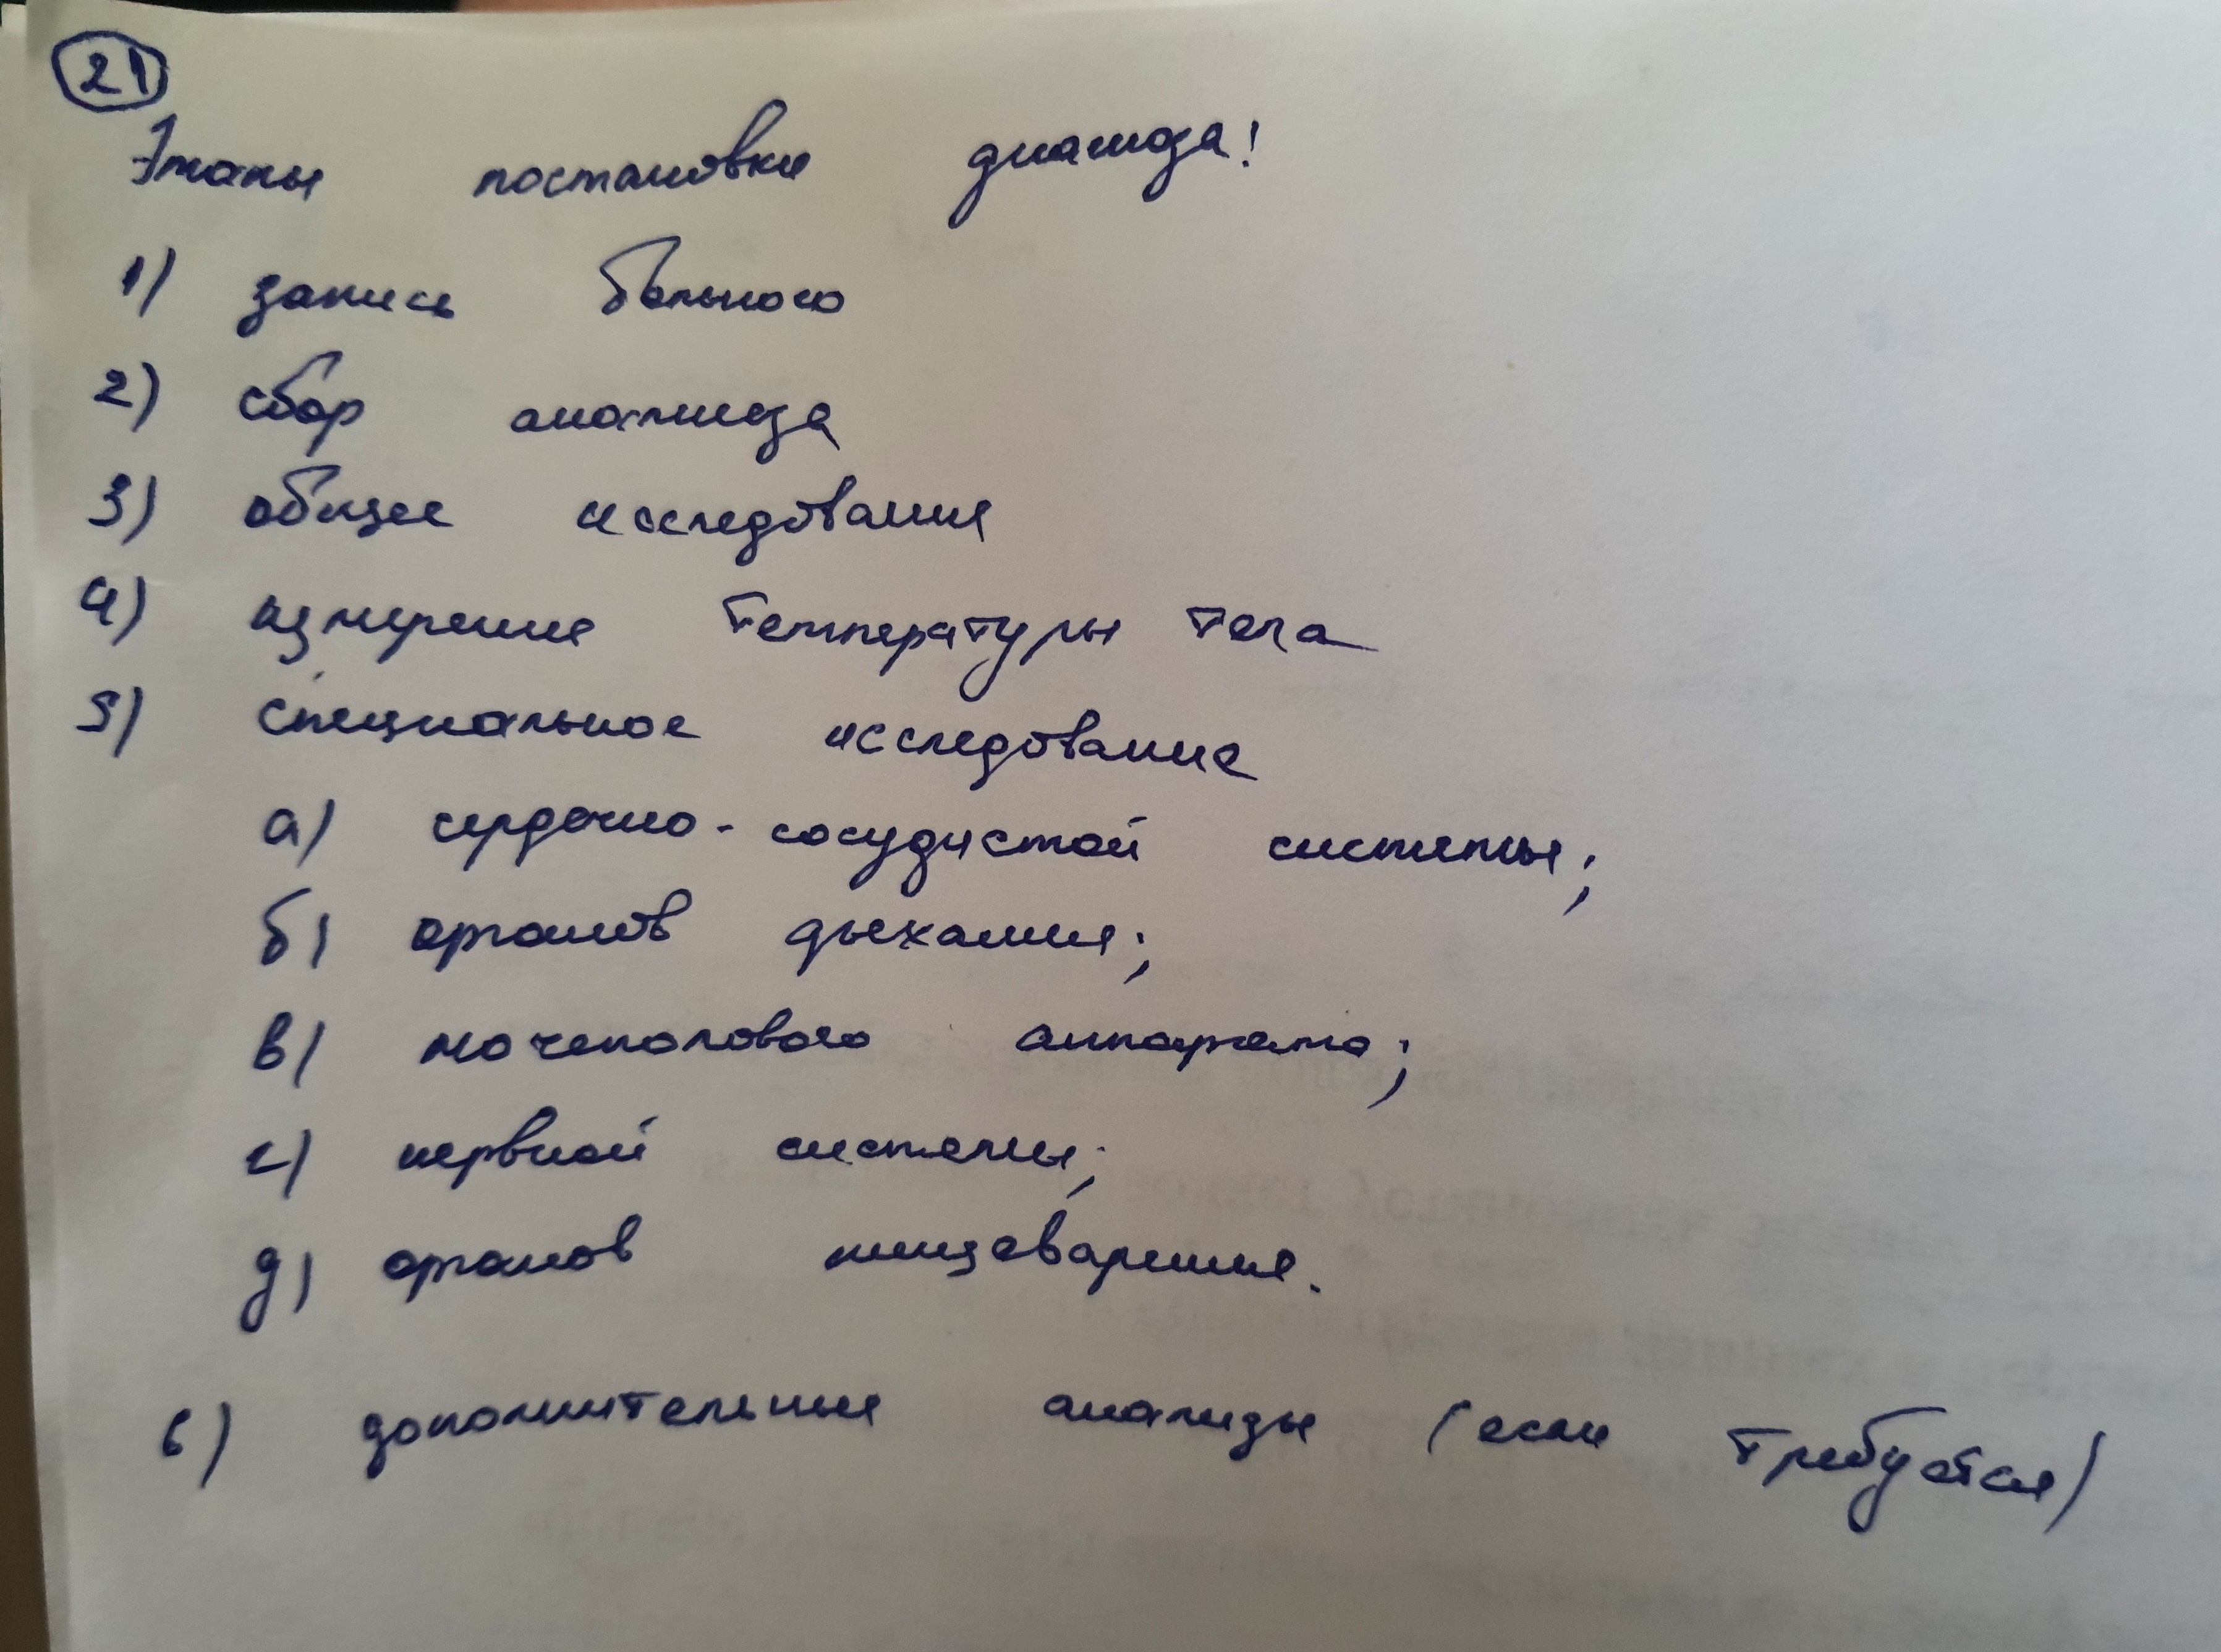 21
Этапы постановки диагноза!
1) запись больного
2) сбор анализа
3) общее исследования
4) измерения температуры тела
5) специальное исследование
а) сердечно-сосудистой системы;
б) органов дыхания;
в) мочеполового аппарата;
г) нервной системы;
д) органов пищеварения.
6) дополнительные анализы (если требуется)